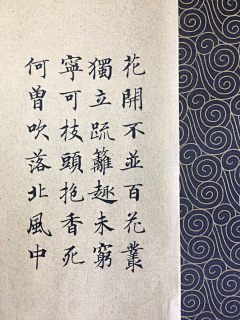 花開不並百花叢
獨立疏籬趣未窮
寧可枝頭抱香死
何曾吹落北風中